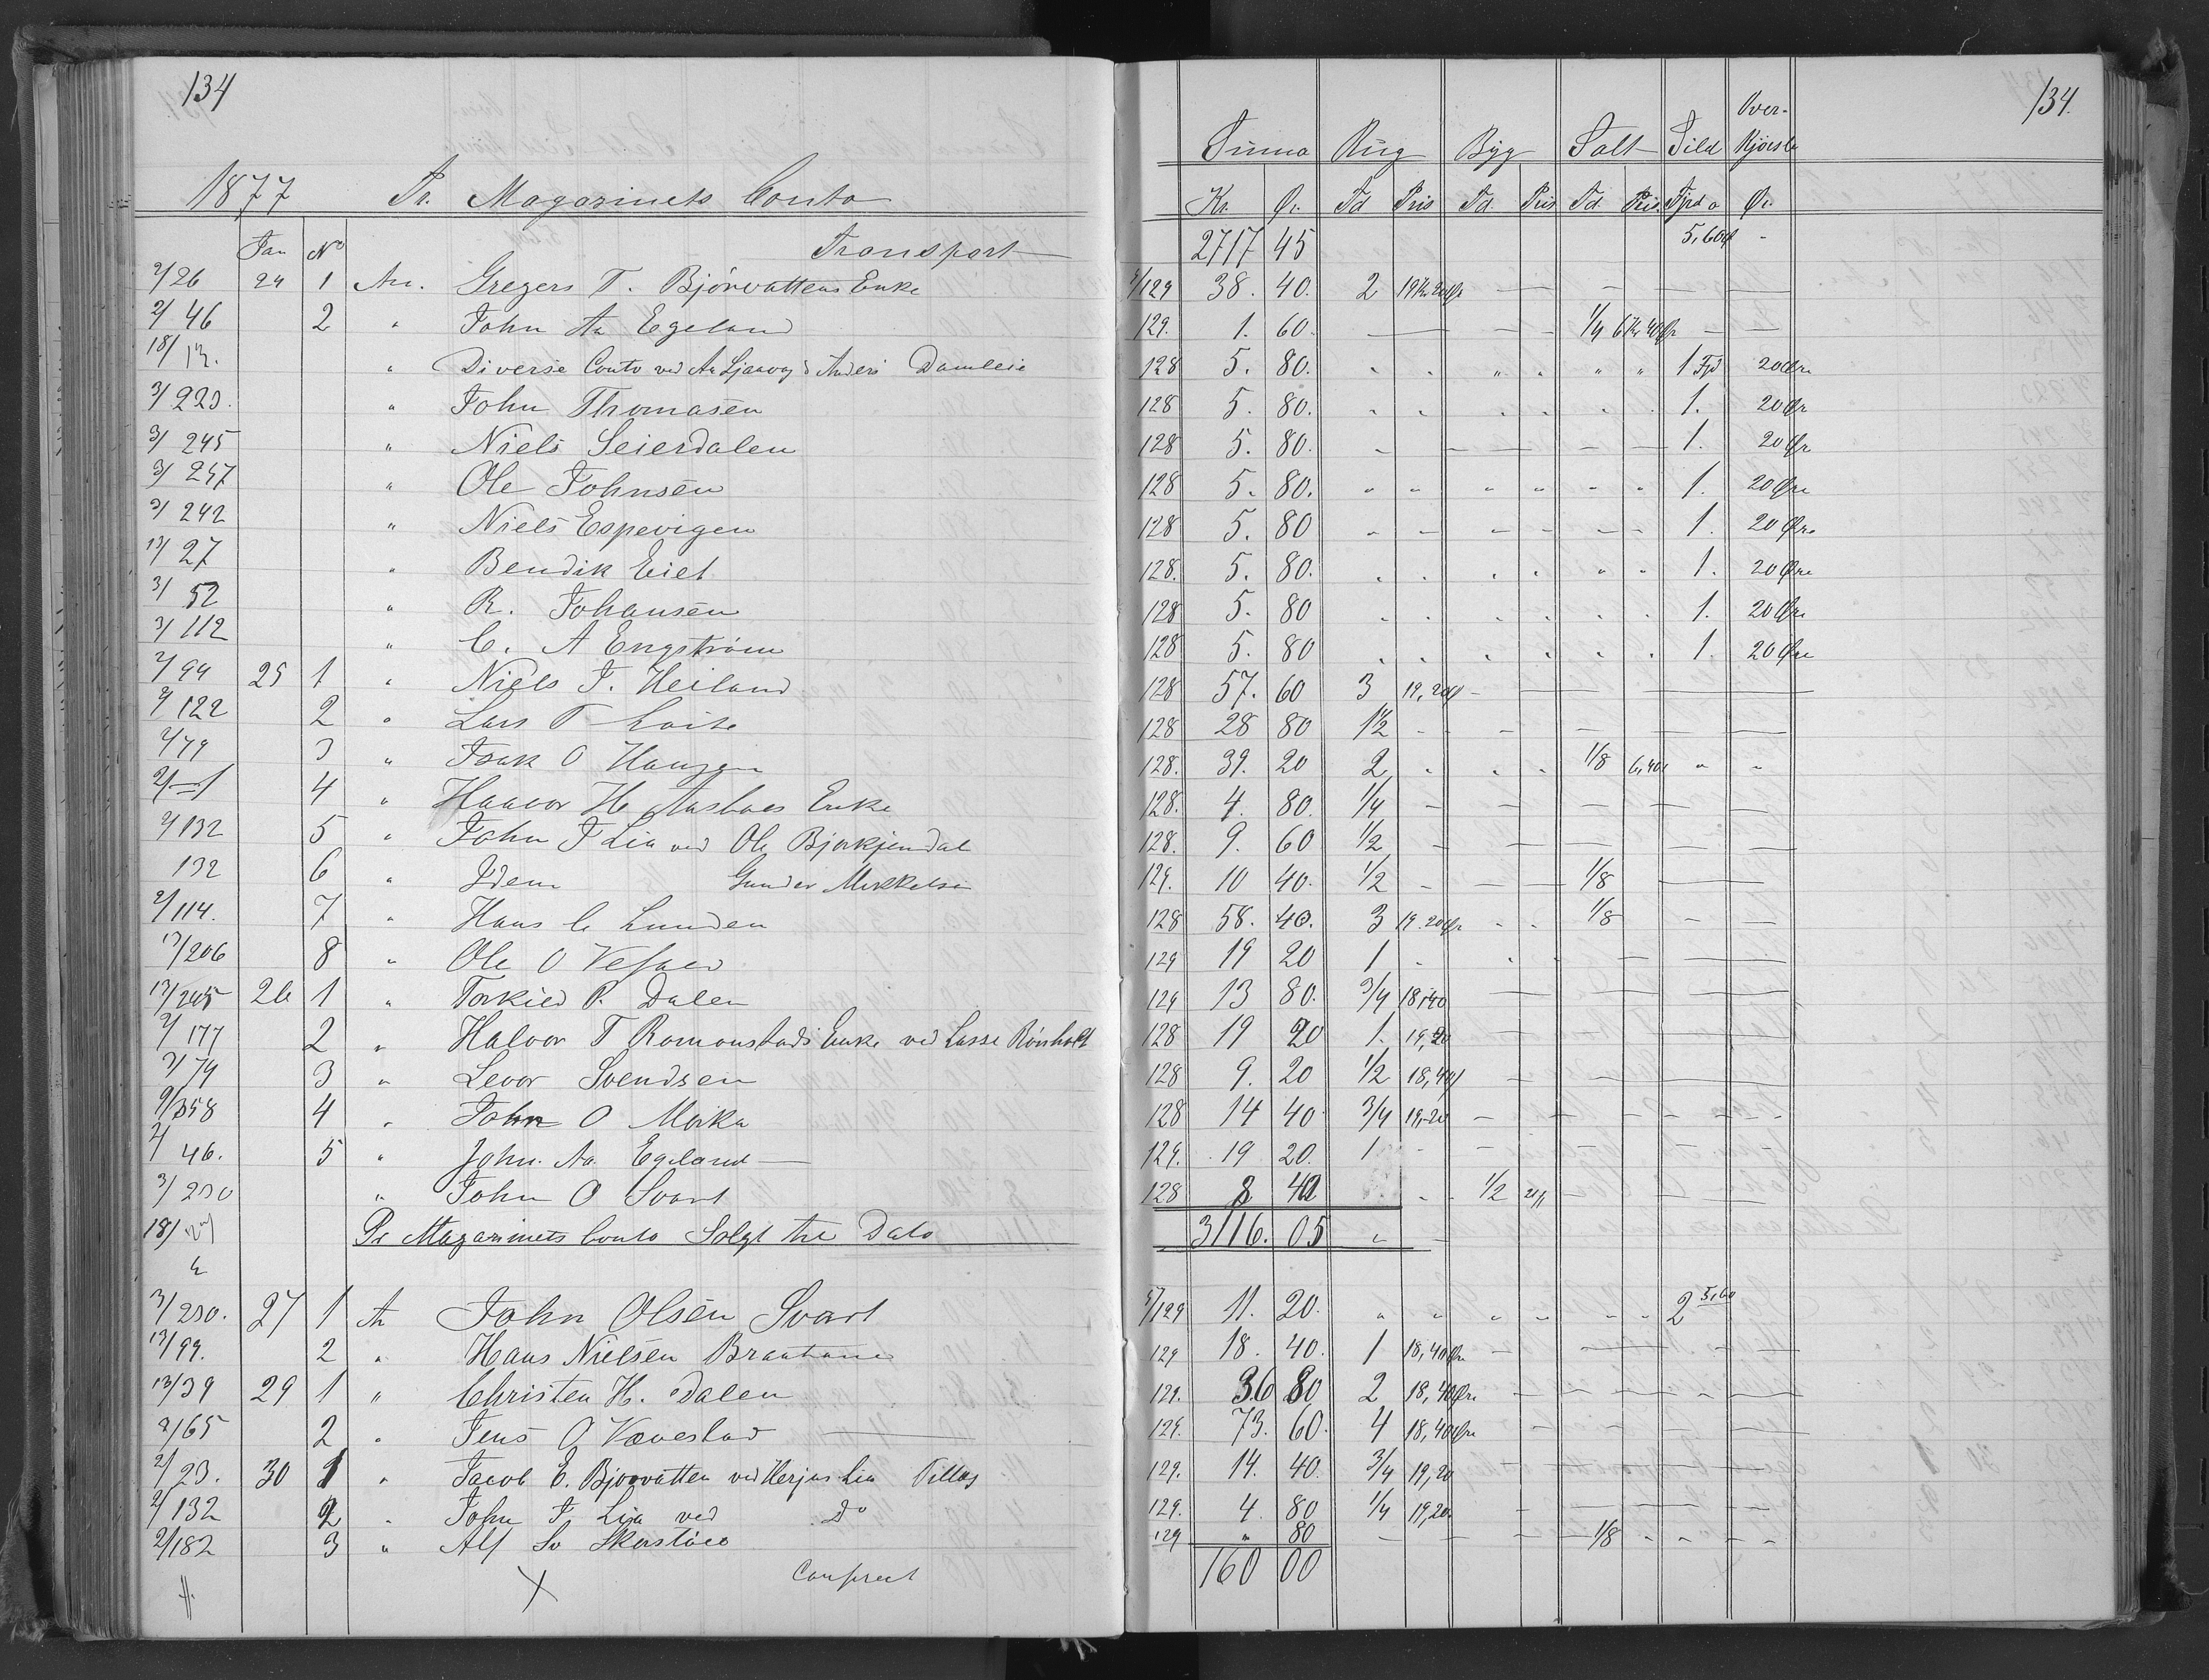 134
1877 Pr. Magazinets Conto
Jan No Transport
2/26 24 1 An. Gregers T. Bjørvattens Enke
2/46 2 " John Aa Egeland
18/ " Diverse Conto ved Anders Damleie
3/223. " John Thomasen
3/245 " Niels Seierdalen
3/247 " Ole Johnsen
3/242 " Niels Espevigen
13/27 " Bendik Eiet
3/52 " R. Johansen
3/112 " C. A Engstrøm
2/94 25 1 " Niels T. Heiland
2/122 2 " Lars T
2/79 3 " Isak O Haugen
4 " Haavor H. Enke
2/132 5 " John T Lia ved Ole Bjorkjendal
132 6 " Idem Gunder Mikkelsen
2/114. 7 " Hans C Lunden
13/206 8 " " Ole O
13/245 26 1 " Torkild P. Dalen
2/177 2 " Halvor T Romonstads Enke ved Lasse Rønholt
3/79 3 " Levor Svendsen
9/358 4 " John O Mørka
2/46. 5 " John. Aa. Egeland
3/230 " John O Svart
18/ Pr Magazinets Conto Solgt til Dato
3/230. 27 1 An John Olsen Svart
13/99. 2 " Hans Nielsen
13/39 29 1 " Christen H. Dalen
2/65 2 " Jens O Vævestad
2/23. 30 1 " Jacob E. Bjorvatten ved Herjus Lia Tillæg
2/132 2 " John T. Lia ved Do
2/182 3 " Alf Sv
X
134.
Summa Rug Byg Salt Sild Over-
Kjørsle
Kr. Ør. Td Pris Td. Pris Td. Pris. Fjrd a Ør.
2717 45 5,60 -
5/129 38. 40. 2 19 Kr 20 Ør
129. 1. 60. 1/4 6 Kr 40 Ør
128 5. 80. " " " " " " 1 Fjd 20 Øre
128 5. 80. 1. 20 Ør
128 5. 80. 1. 20 Ør
128 5. 80. " " " " " " 1. 20 Øre
128 5. 80 1. 20 Øre
128. 5. 80. 1. 20 Øre
128 5. 80 1. 20 Øre
128 5. 80 1. 20 Øre
128 57. 60 3 19,20
128 28 80 1 1/2
128. 39. 20 2 1/8 6,40
128. 4. 80. 1/4
128. 9. 60 1/2
129. 10 40. 1/2 1/8
128 58. 40. 3 19.20 Ør 1/8
129 19 20 1
129 13 80. 3/4 18,40
128 19 20 1. 19,20
128 9. 20 1/2 18,40
128 14 40 3/4 19,20
129. 19 20. 1
128 8 40 1/2
3116. 05
5/129 11. 20. 2 5,60
129 18. 40. 1 18,40 Øre
129. 36 80 2 18,40 Øre
129. 73. 60. 4 18,40 Øre
129. 14. 40. 3/4 19,20
129. 4. 80 1/4 19,20
129 " 80 1/8
160 00